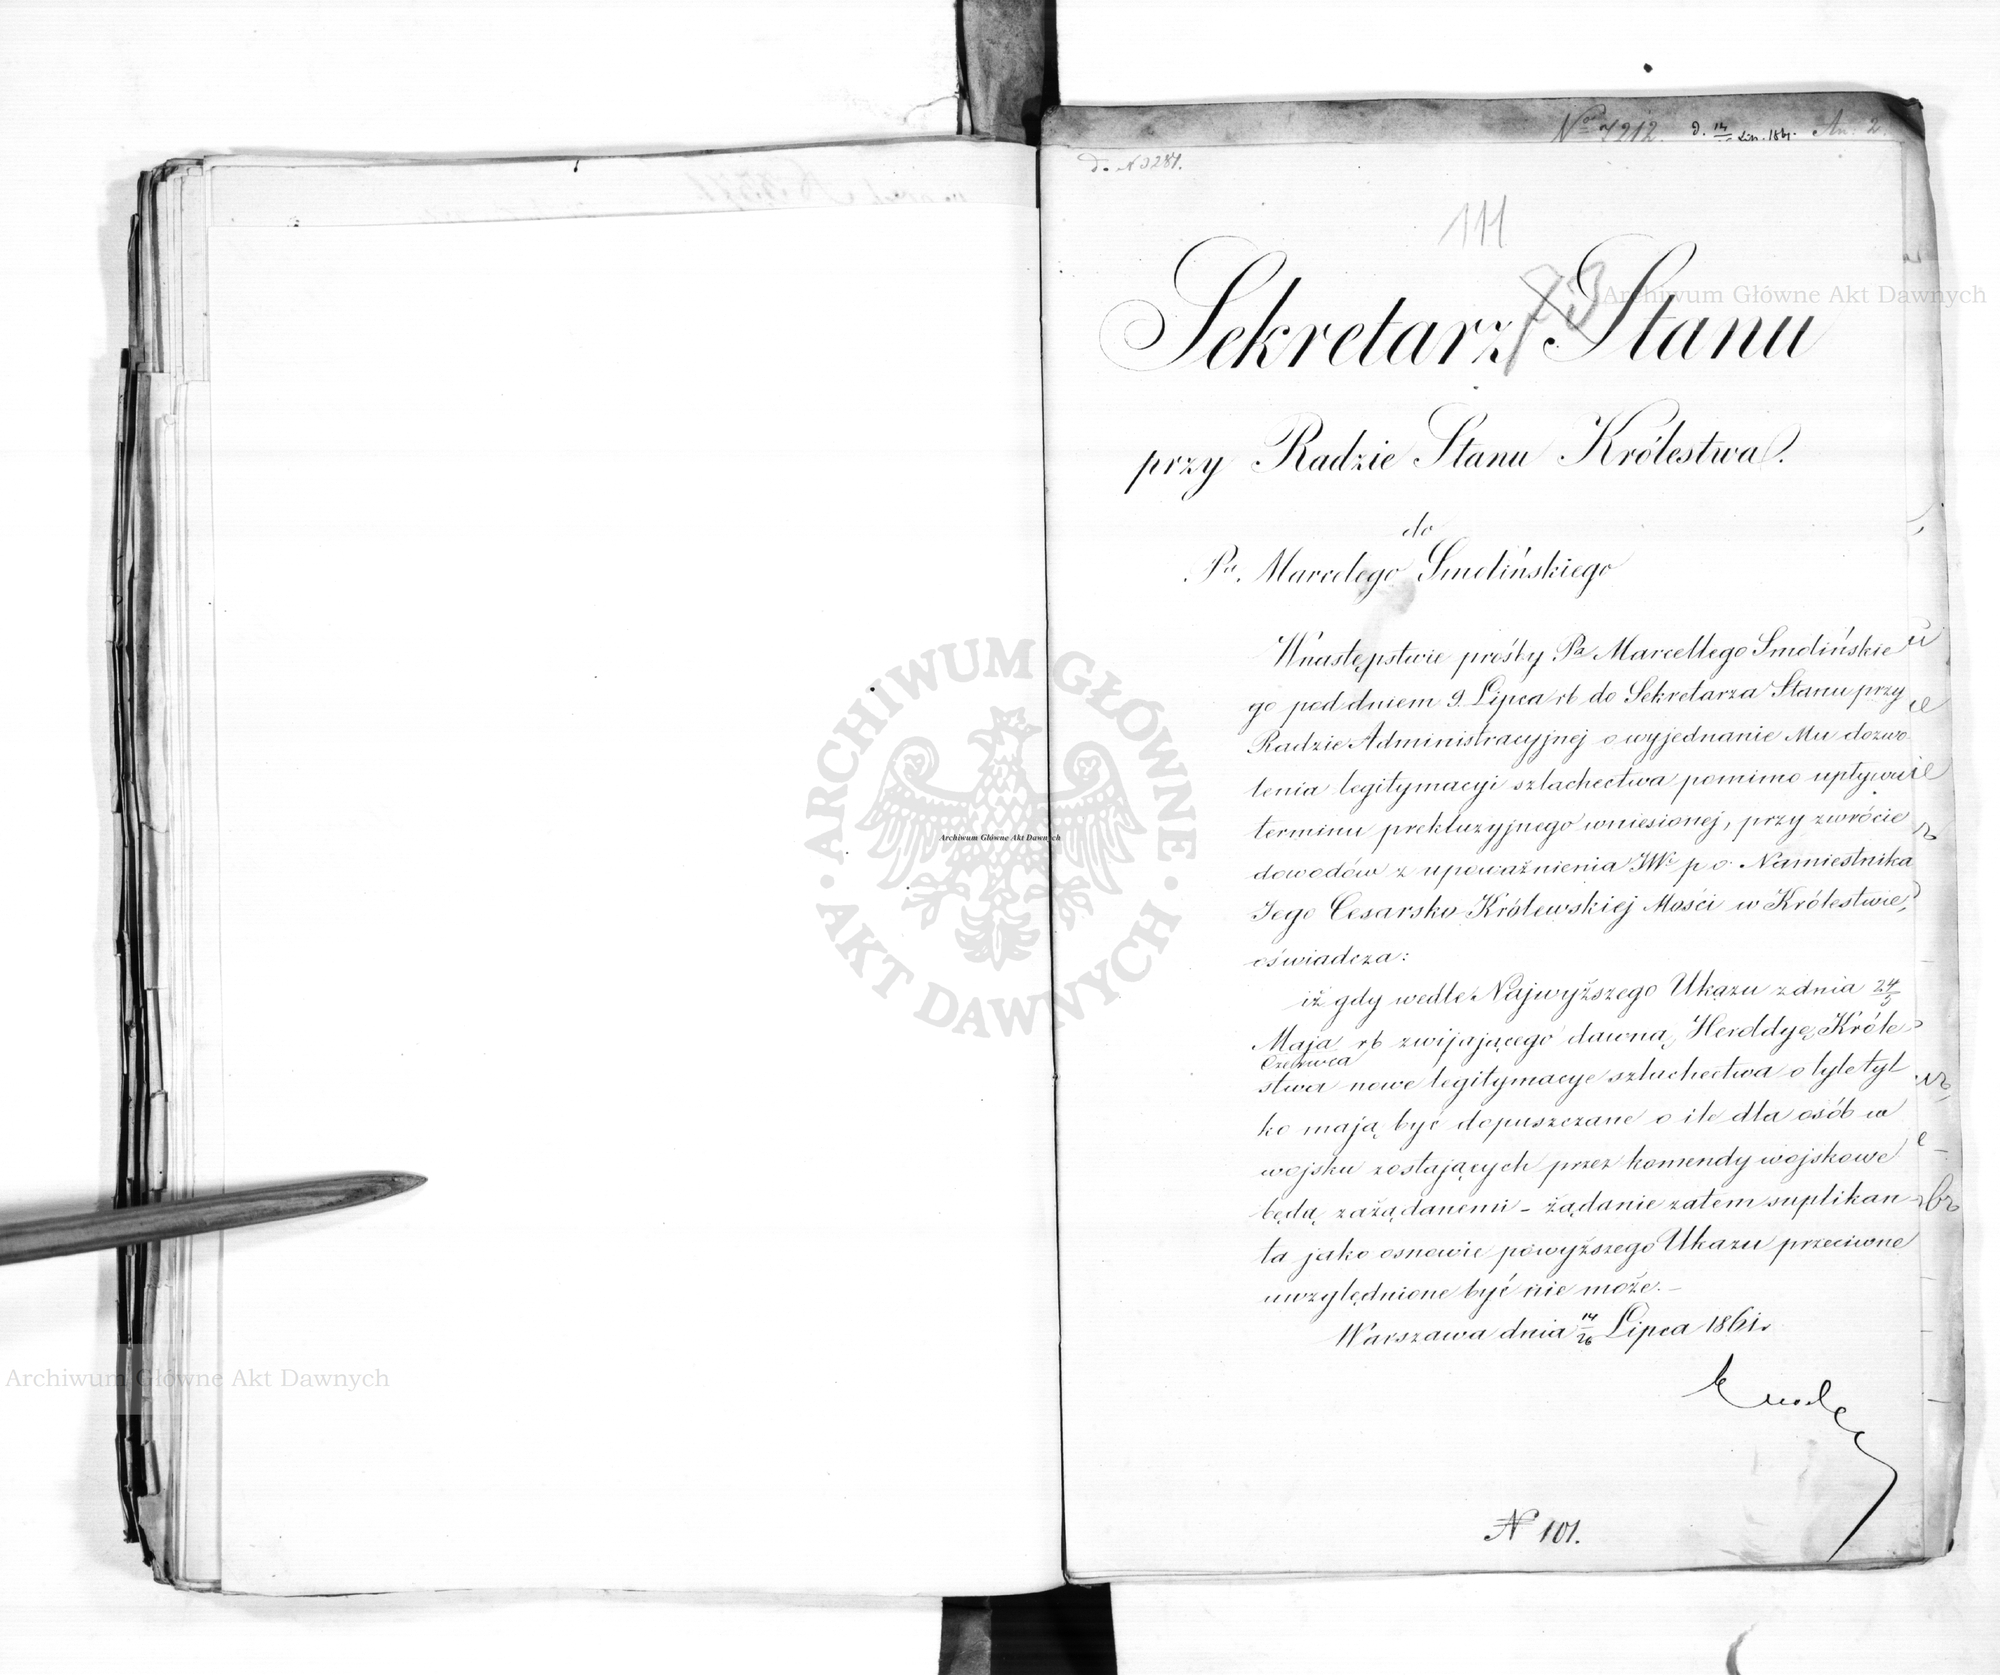 No 7212. d. 14 Lip. 1861. An. 2.
D. N 3281.
111
73
Sekretarz Stanu
przy Radzie Stanu Królestwa.
do
Pa. Marcelego Smolińskiego
W następstwie prośby Pa Marcellego Smolińskie
go pod dniem 9. Lipca rb do Sekretarza Stanu przy
Radzie Administracyjnej o wyjednanie Mu dozwo
lenia legitymacyi szlachectwa pomimo upływu
terminu prekluzyjnego wniesionej, przy zwrócie
dowodów z upoważnienia JW. p o Namiestnika
Jego Cesarsko-Królewskiej Mości w Królestwie,
oświadcza:
iż gdy wedle Najwyższego Ukazu z dnia 24/5
Maja rb zwijającego dawną Heroldyę Króle
Czerwca
stwa nowe legitymacye szlachectwa o tyle tyl
ko mają być dopuszczane o ile dla osób w
wojsku zostających przez komendy wojskowe
będą zażądanemi - żądanie zatem suplikan
ta jako osnowie powyższego Ukazu przeciwne
uwzględnione być nie może. -
Warszawa dnia 14/26 Lipca 1861 r.
N 101.
Archiwum Główne Akt Dawnych
Archiwum Główne Akt Dawnych
Archiwum Główne Akt Dawnych
ARCHIWUM GŁÓWNE · AKT DAWNYCH ·